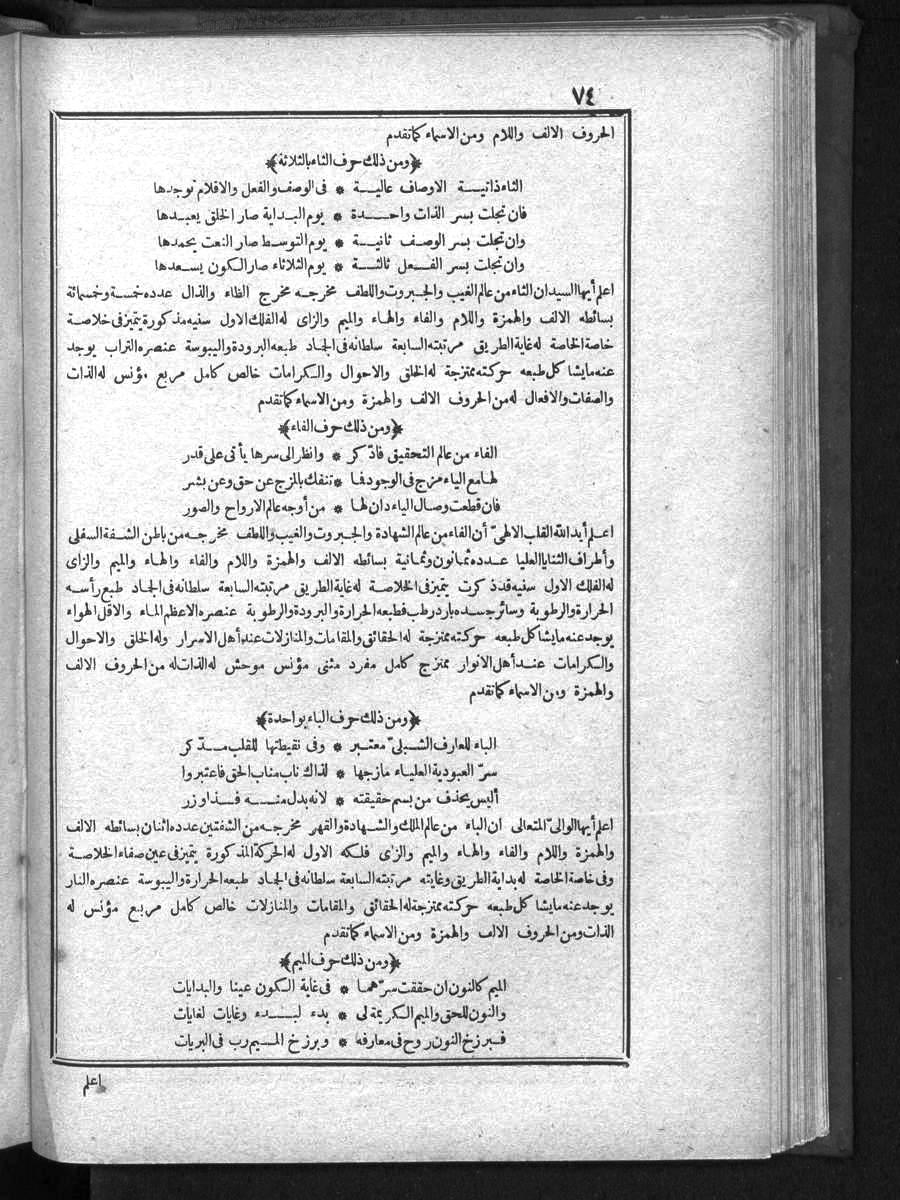 ٧٤
الحروف الالف واللام ومن الاسماء كما تقدم
﴿ومن ذلك حرف الثاء بالثلاثة﴾
الثاء ذاتية الاوصاف عالية * فى الوصف والفعل والاقلام توجدها
فان تجلت بسر الذات واحدة * يوم البداية صار الخلق يعبدها
وان تجلت بسر الوصف ثانية * يوم التوسط صار النعت يحمدها
وان تجلت بسر الفعل ثالثة * يوم الثلاثاء صار الكون يسعدها
اعلم أيها السيد ان الثاء من عالم الغيب والجبروت واللطف مخرجه مخرج الظاء والذال عدده خمسة وخمسمائة
بسائطه الالف والهمزة واللام والفاء والهاء والميم والزاى له الفلك الاول سنيه مذكورة يتميز فى خلاصة
خاصة الخاصة له غاية الطريق مرتبته السابعة سلطانه فى الجماد طبعه البرودة واليبوسة عنصره التراب يوجد
عنه مايشا كل طبعه حركته ممتزجة له الخلق والاحوال والكرامات خالص كامل مربع مؤنس له الذات
والصفات والافعال له من الحروف الالف والهمزة ومن الاسماء كما تقدم
﴿ومن ذلك حرف الفاء﴾
الفاء من عالم التحقيق فادّكر * وانظر الى سرها يأتى على قدر
لها مع الياء مزج فى الوجود فما * تنفك بالمزج عن حق وعن بشر
فان قطعت وصال الياء دان لها * من أوجه عالم الارواح والصور
اعلم أيد الله القلب الالهىّ أن الفاء من عالم الشهادة والجبروت والغيب واللطف مخرجه من باطن الشفة السفلى
وأطراف الثنايا العليا عدده ثمانون وثمانية بسائطه الالف والهمزة واللام والفاء والهاء والميم والزاى
له الفلك الاول سنيه قد ذكرت يتميز فى الخلاصة له غاية الطريق مرتبته السابعة سلطانه فى الجماد طبع رأسه
الحرارة والرطوبة وسائر جسده بارد رطب فطبعه الحرارة والبرودة والرطوبة عنصره الاعظم الماء والاقل الهواء
يوجد عنه مايشا كل طبعه حركته ممتزجة له الحقائق والمقامات والمنازلات عند أهل الاسرار وله الخلق والاحوال
والكرامات عند أهل الانوار ممتزج كامل مفرد مثنى مؤنس موحش له الذات له من الحروف الالف
والهمزة ومن الاسماء كما تقدم
﴿ومن ذلك حرف الباء بواحدة﴾
الباء للعارف الشبلىّ معتبر * وفى نقيطتها للقلب مدّكر
سرّ العبودية العلياء مازجها * لذاك ناب مناب الحق فاعتبروا
أليس يحذف من بسم حقيقته * لانه بدل منه فذا وزر
اعلم أيها الوالىّ المتعالى ان الباء من عالم الملك والشهادة والقهر مخرجه من الشفتين عدده اثنان بسائطه الالف
والهمزة واللام والفاء والهاء والميم والزاى فلكه الاول له الحركة المذكورة يتميز فى عين صفاء الخلاصة
وفى خاصة الخاصة له بداية الطريق وغايته مرتبته السابعة سلطانه فى الجماد طبعه الحرارة واليبوسة عنصره النار
يوجد عنه مايشا كل طبعه حركته ممتزجة له الحقائق والمقامات والمنازلات خالص كامل مربع مؤنس له
الذات ومن الحروف الالف والهمزة ومن الاسماء كما تقدم
﴿ومن ذلك حرف الميم﴾
الميم كالنون ان حققت سرّهما * فى غاية الكون عينا والبدايات
والنون للحق والميم الكريمة لى * بدء لبدء وغايات لغايات
فبرزخ النون روح فى معارفه * وبرزخ الميم رب فى البريات
اعلم